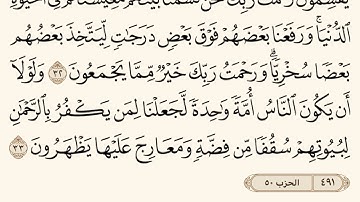 يَقْسِمُونَ رَحْمَتَ رَبِّكَ نَحْنُ قَسَمْنَا بَيْنَهُم مَّعِيشَتَهُمْ فِي الْحَيَوٰةِ
الدُّنْيَا ۚ وَرَفَعْنَا بَعْضَهُمْ فَوْقَ بَعْضٍ دَرَجَٰتٍ لِّيَتَّخِذَ بَعْضُهُم
بَعْضًا سُخْرِيًّا ۗ وَرَحْمَتُ رَبِّكَ خَيْرٌ مِّمَّا يَجْمَعُونَ ٣٢ وَلَوْلَآ
أَن يَكُونَ النَّاسُ أُمَّةً وَٰحِدَةً لَّجَعَلْنَا لِمَن يَكْفُرُ بِالرَّحْمَٰنِ
لِبُيُوتِهِمْ سُقُفًا مِّن فِضَّةٍ وَمَعَارِجَ عَلَيْهَا يَظْهَرُونَ ٣٣
٤٩١ الحزب ٥٠